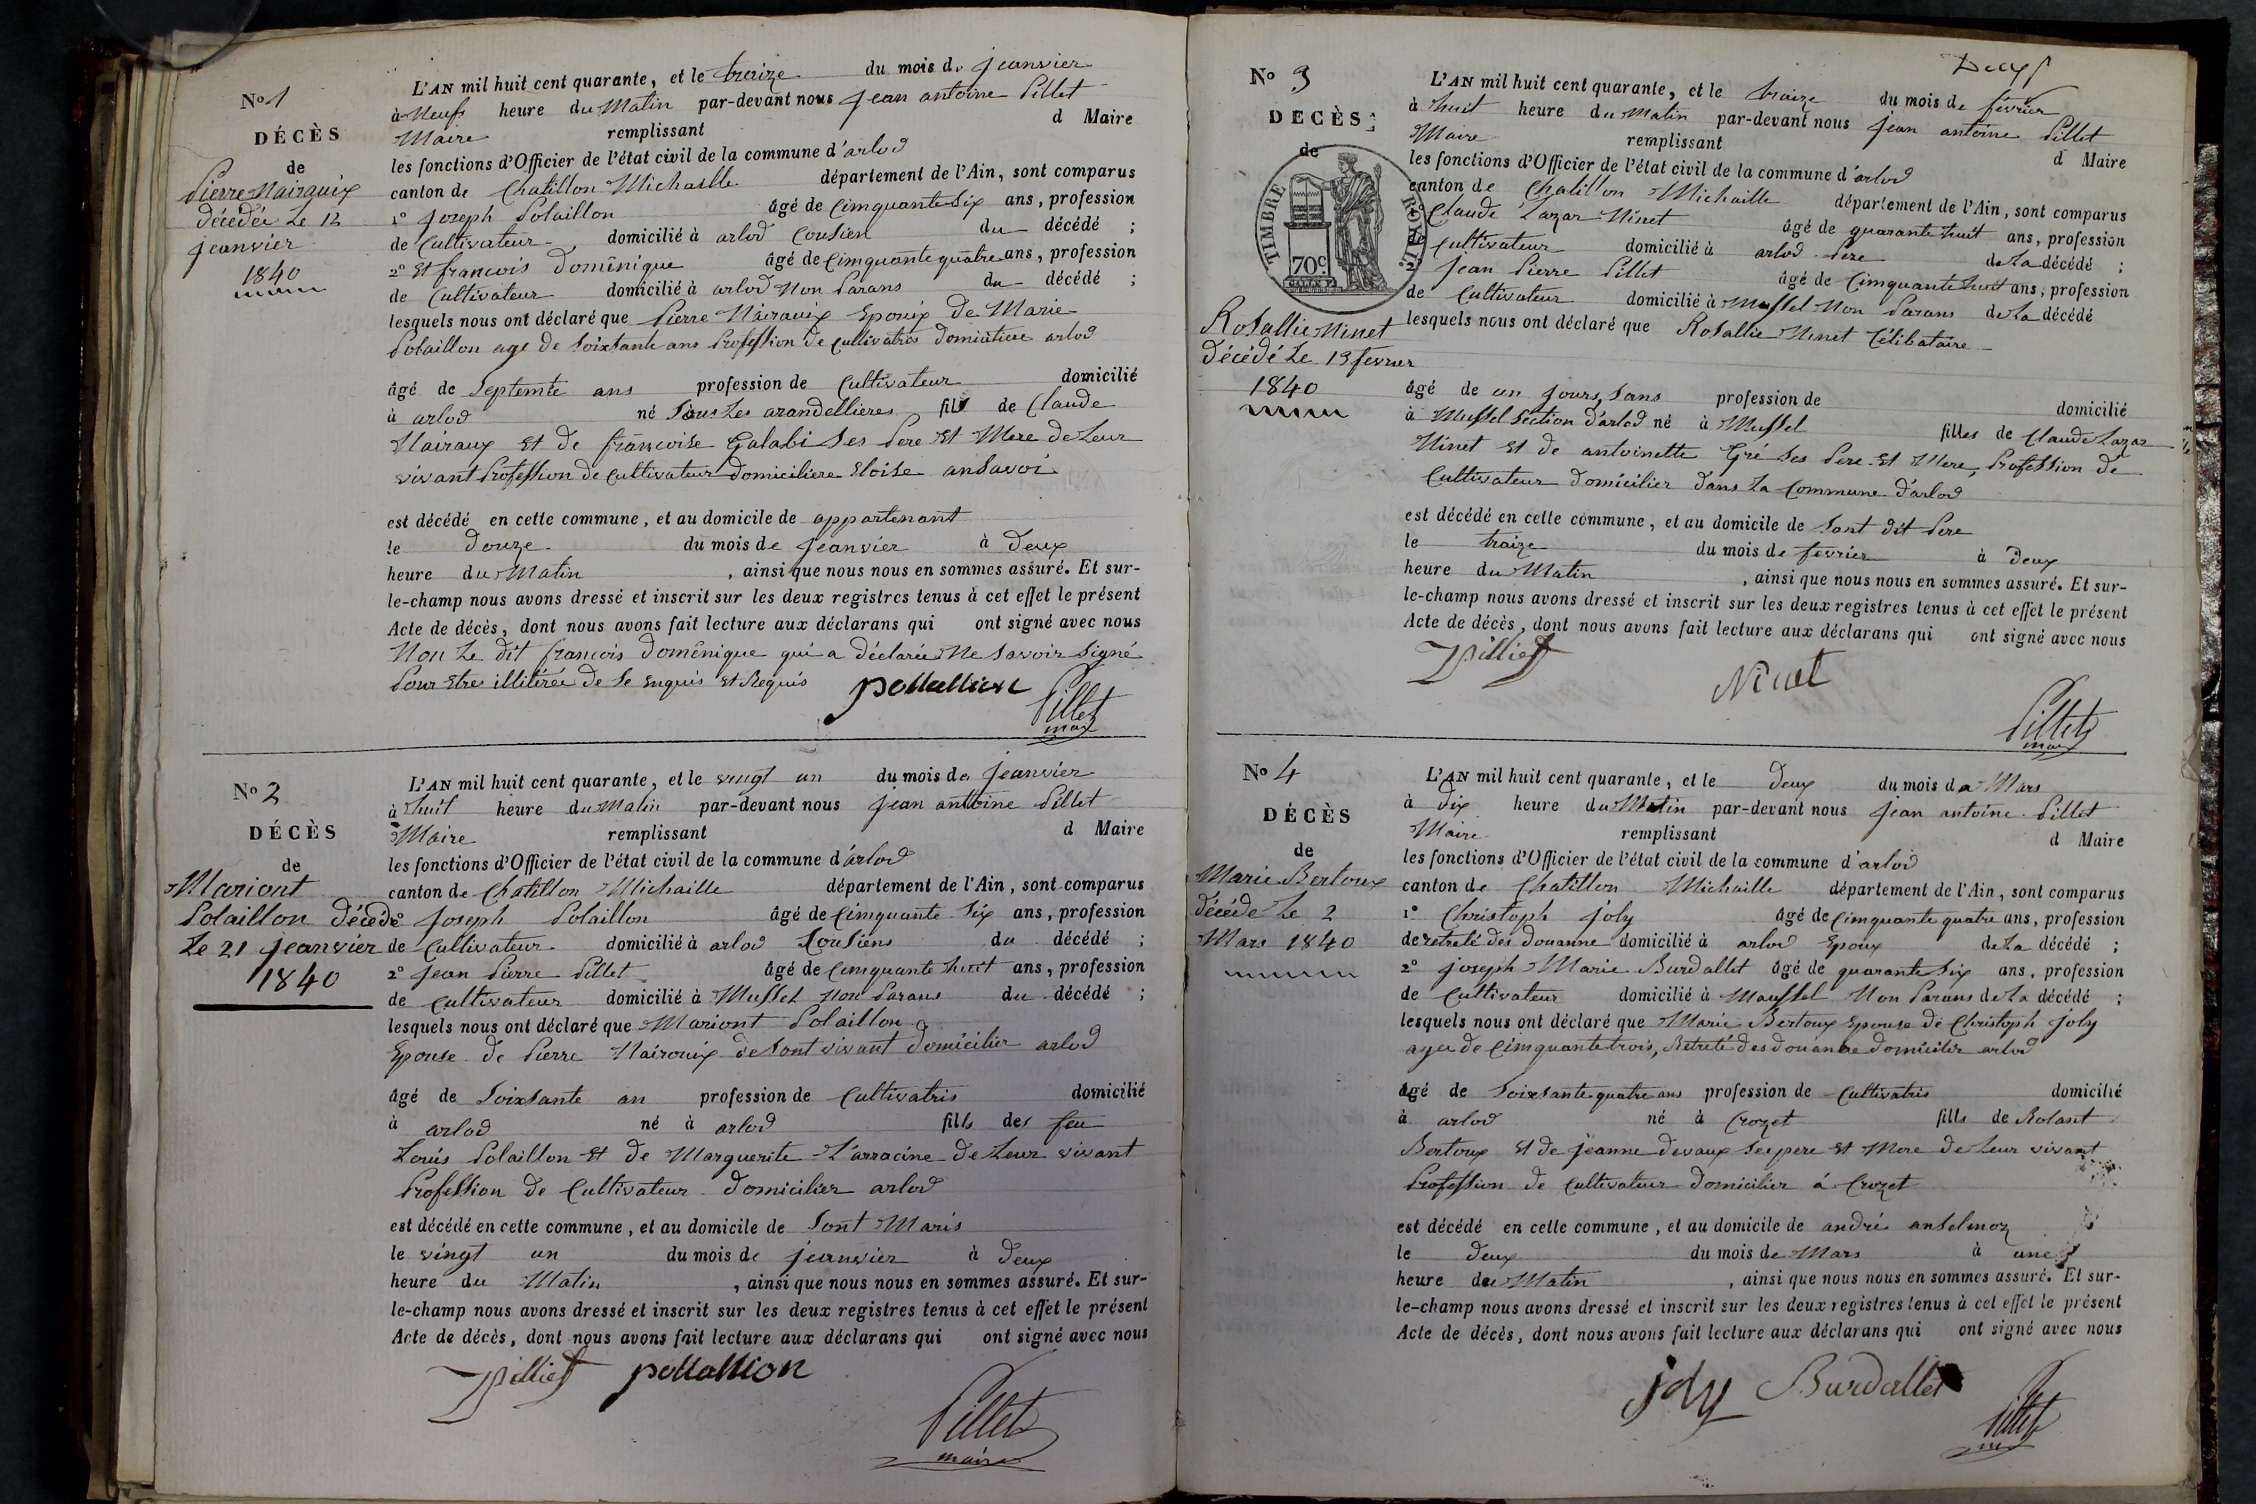 No 1
DÉCÈS
de
Pierre Nairauix
décedée Le 12
jeanvier
1840
L'AN mil huit cent quarante, et le treize du mois de jeanvier
à Neufs heure du Matin par-devant nous jean antoine Pillet
Maire remplissant d Maire
les fonctions d'Officier de l'état civil de la commune d'arlod
canton de Chatillon Michaille département de l'Ain, sont comparus
1° joseph Polaillon âgé de Cimquante Six ans, profession
de Cultivateur domicilié à arlod Cousien du décédé ;
2° Et francois domênique âgé de Cimquante quatre ans, profession
de Cultivateur domicilié à arlod Non Parans du décédé ;
lesquels nous ont déclaré que Pierre Nairauix Epouix De Marie
Polaillon age de Soixsante ans Profession de Cultivatris domicilier arlod
âgé de Septemte ans profession de Cultivateur domicilié
à arlod né Sous Les arandellieres fils de Claude
Nairaux Et de francoise Galabi Ses Pere Et Mere de Leur
vivant Profession de Cultivateur domiciliere Eloise ansavoi
est décédé en cette commune, et au domicile de appartenant
le douze du mois de jeanvier à deux
heure du Matin , ainsi que nous nous en sommes assuré. Et sur-
le-champ nous avons dressé et inscrit sur les deux registres tenus à cet effet le présent
Acte de décès, dont nous avons fait lecture aux déclarans qui ont signé avec nous
Non Le dit francois domênique qui a déclarée Ne Savoir Signé
Pour Etre illitérée de Se Enquis Et Requis
pollallion
Pillet
No 2
DÉCÈS
de
Mariont
Polaillon décédé
Le 21 jeanvier
1840
L'AN mil huit cent quarante, et le vingt un du mois de jeanvier
à huit heure du Matin par-devant nous jean antoine Pillet
Maire remplissant d Maire
les fonctions d'Officier de l'état civil de la commune d'arlod
canton de Chatillon Michaille département de l'Ain, sont comparus
joseph Polaillon âgé de Cimquante Six ans, profession
de Cultivateur domicilié à arlod Cousiens du décédé ;
2° jean Pierre Pillet âgé de Cimquante huit ans, profession
de Cultivateur domicilié à Mussel Non Parans du décédé ;
lesquels nous ont déclaré que Mariont Polaillon
Epouse de Pierre Nairouix de Sont vivant domicilier arlod
âgé de Soixsante an profession de Cultivatris domicilié
à arlod né à arlod fille des feu
Louis Polaillon Et de Marguerite L'arracine de Leur vivant
Profession de Cultivateur domicilier arlod
est décédé en cette commune, et au domicile de Sont Maris
le vingt un du mois de jeanvier à deux
heure du Matin , ainsi que nous nous en sommes assuré. Et sur-
le-champ nous avons dressé et inscrit sur les deux registres tenus à cet effet le présent
Acte de décès, dont nous avons fait lecture aux déclarans qui ont signé avec nous
Pilliet pollallion
Pillet
maire
No 3
DECÈS
de
TIMBRE ROYAL
70c
Rosallie Ninet
décédé Le 13 fevrier
1840
L'AN mil huit cent quarante, et le traize du mois de février
à huit heure du Matin par-devant nous jean antoine Pillet
Maire remplissant d Maire
les fonctions d'Officier de l'état civil de la commune d'arlod
canton de Chatillon Michaille département de l'Ain, sont comparus
Claude Lazar Ninet âgé de quarante huit ans, profession
de Cultivateur domicilié à arlod Pere de La décédé ;
jean Pierre Pillet âgé de Cimquante huit ans, profession
de Cultivateur domicilié à Mussel Non Parans de La décédé
lesquels nous ont déclaré que Rosallie Ninet Célibataire
âgé de un jours, Sans profession de domicilié
à Mussel Section d'arlod né à Mussel filles de Claude Lazar
Ninet Et de antoinette Gré Ses Pere Et Mere, Profession de
Cultivateur domicilier dans La Commune d'arlod
est décédé en cette commune, et au domicile de Sont dit Pere
le traize du mois de fevrier à deux
heure du Matin , ainsi que nous nous en sommes assuré. Et sur-
le-champ nous avons dressé et inscrit sur les deux registres tenus à cet effet le présent
Acte de décès, dont nous avons fait lecture aux déclarans qui ont signé avec nous
Pilliet
Ninet
Pillet
No 4
DÉCÈS
de
Marie Bertoux
décéde Le 2
Mars 1840
L'AN mil huit cent quarante, et le deux du mois de Mars
à dix heure du Matin par-devant nous jean antoine Pillet
Maire remplissant d Maire
les fonctions d'Officier de l'état civil de la commune d'arlod
canton de Chatillon Michaille département de l'Ain, sont comparus
1° Christoph joly âgé de Cimquante quatre ans, profession
de retreté des douanne domicilié à arlod Epoux de La décédé ;
2° joseph Marie Burdallet âgé de quarante Six ans, profession
de Cultivateur domicilié à Moussel Non Parans de La décédé ;
lesquels nous ont déclaré que Marie Bertoux Epouse de Christoph joly
ager de Cimquante trois, Retreté des douanne domicilier arlod
âgé de Soixsante quatre ans profession de Cultivatris domicilié
à arlod né à Crozet fille de Rolant
Bertoux Et de jeanne devaux Ses pere Et Mere de Leur vivant
Profession de Cultivateur domicilier á Crozet
est décédé en cette commune, et au domicile de andré anselmoz
le deux du mois de Mars à une
heure du Matin , ainsi que nous nous en sommes assuré. Et sur-
le-champ nous avons dressé et inscrit sur les deux registres tenus à cet effet le présent
Acte de décès, dont nous avons fait lecture aux déclarans qui ont signé avec nous
joly Burdallet
Pillet